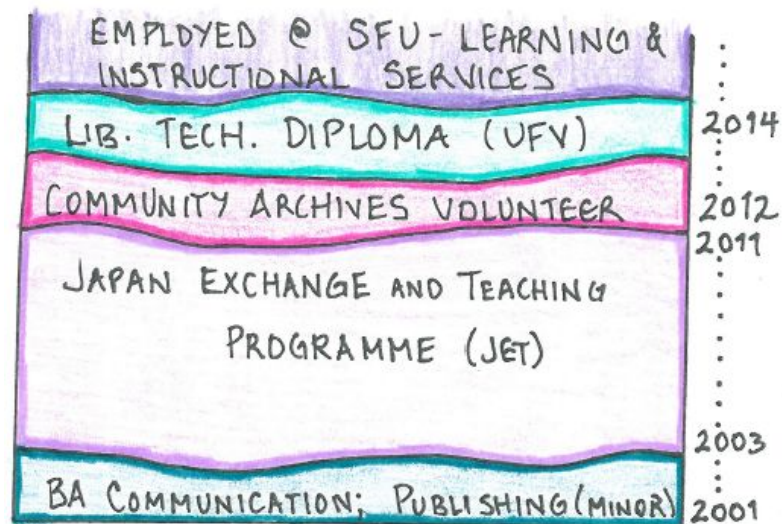 EMPLOYED @ SFU - LEARNING &
INSTRUCTIONAL SERVICES
LIB. TECH. DIPLOMA (UFV)
2014
COMMUNITY ARCHIVES VOLUNTEER
2012
2011
JAPAN EXCHANGE AND TEACHING
PROGRAMME (JET)
2003
BA COMMUNICATION; PUBLISHING (MINOR)
2001